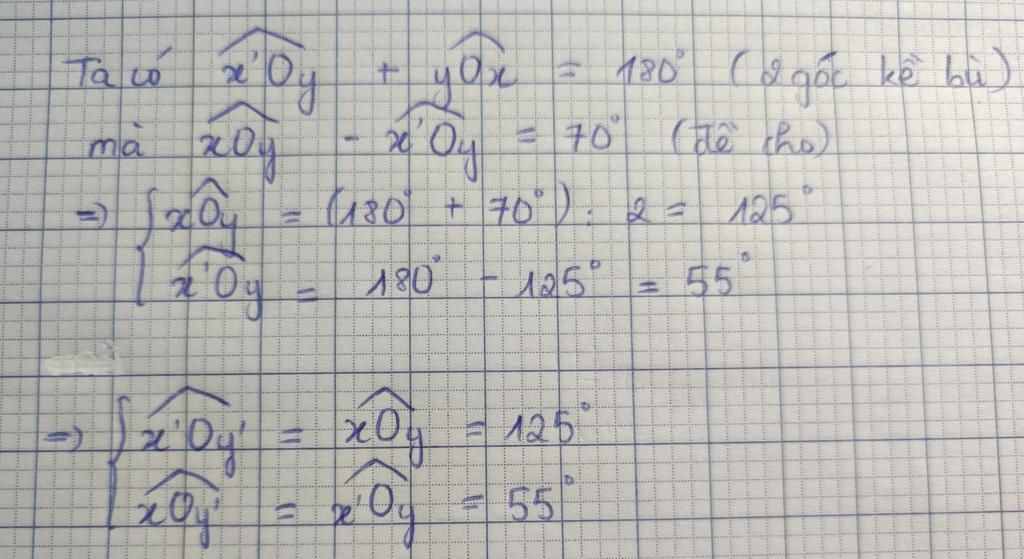 Ta có x'Oy + yOx = 180° (2 góc kề bù)
mà xOy - x'Oy = 70° (đề cho)
=> { xOy = (180° + 70°) : 2 = 125°
x'Oy = 180° - 125° = 55°
=> { x'Oy' = xOy = 125°
xOy' = x'Oy = 55°